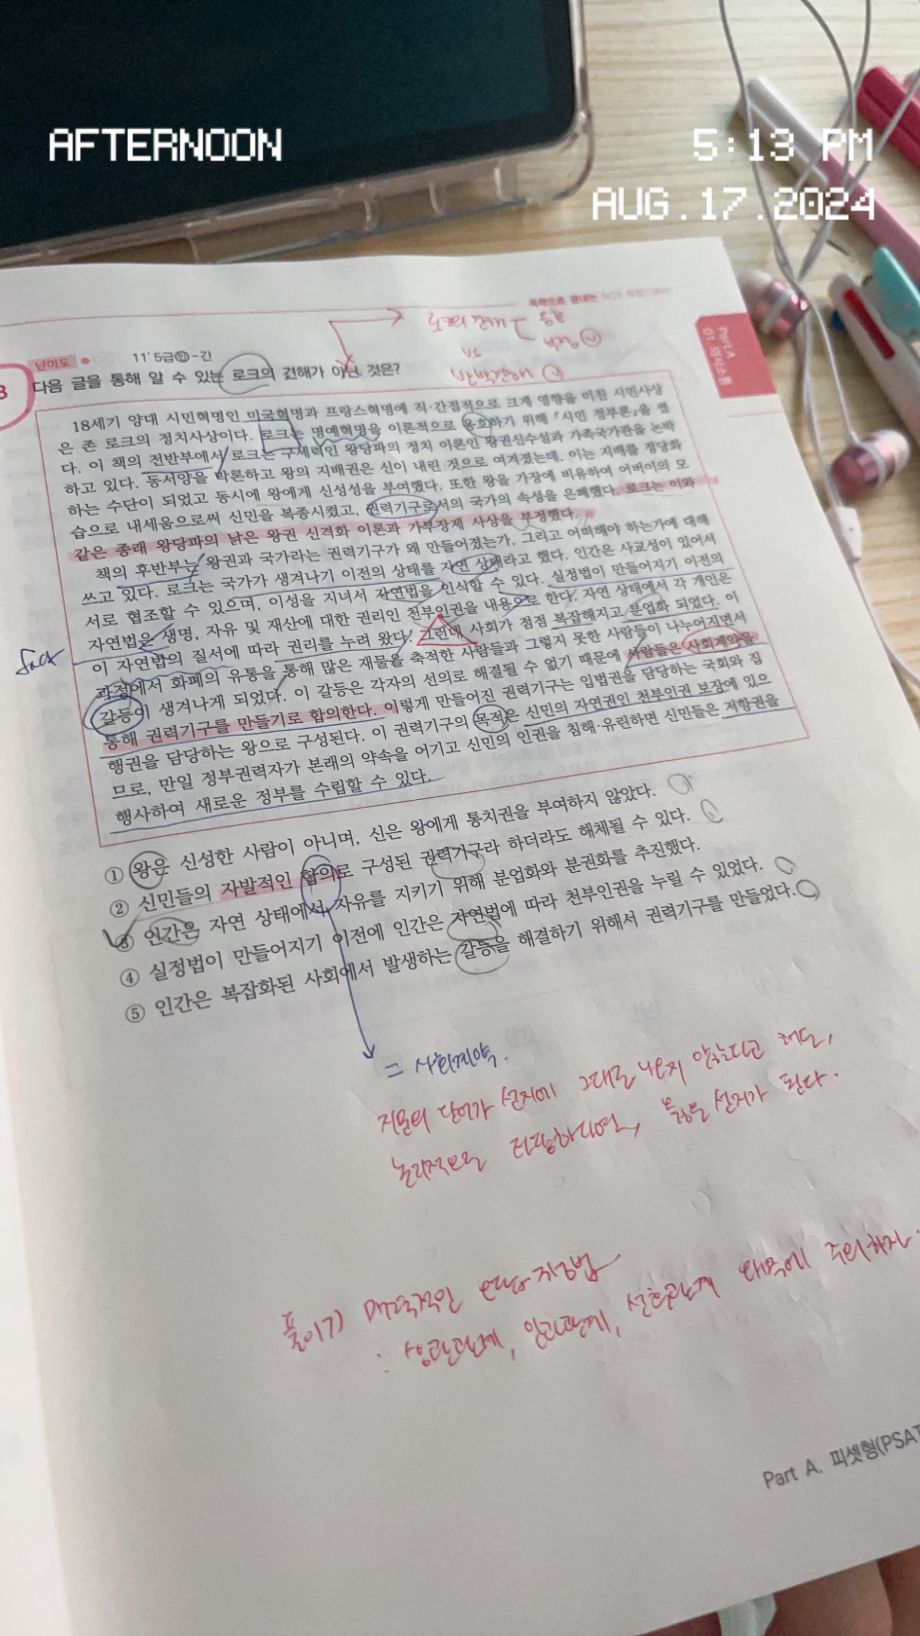 AFTERNOON
5:13 PM
AUG.17.2024
Part A
01. 의사소통
로크의 견해
vs
난이도
11' 5급 - 간
3
다음 글을 통해 알 수 있는 로크의 견해가 아닌 것은?
18세기 양대 시민혁명인 미국혁명과 프랑스혁명에 직·간접적으로 크게 영향을 미친 시민사상
은 존 로크의 정치사상이다. 로크는 명예혁명을 이론적으로 옹호하기 위해 『시민 정부론』을 썼
다. 이 책의 전반부에서 로크는 구세력인 왕당파의 정치 이론인 왕권신수설과 가족국가관을 논박
하고 있다. 동서양을 막론하고 왕의 지배권은 신이 내린 것으로 여겨졌는데, 이는 지배를 정당화
하는 수단이 되었고 동시에 왕에게 신성성을 부여했다. 또한 왕을 가장에 비유하여 어버이의 모
습으로 내세움으로써 신민을 복종시켰고, 권력기구로서의 국가의 속성을 은폐했다. 로크는 이와
같은 종래 왕당파의 낡은 왕권 신격화 이론과 가부장제 사상을 부정했다.
책의 후반부는 왕권과 국가라는 권력기구가 왜 만들어졌는가, 그리고 어떠해야 하는가에 대해
쓰고 있다. 로크는 국가가 생겨나기 이전의 상태를 자연 상태라고 했다. 인간은 사교성이 있어서
서로 협조할 수 있으며, 이성을 지녀서 자연법을 인식할 수 있다. 실정법이 만들어지기 이전의
자연법은 생명, 자유 및 재산에 대한 권리인 천부인권을 내용으로 한다. 자연 상태에서 각 개인은
이 자연법의 질서에 따라 권리를 누려 왔다. 그런데 사회가 점점 복잡해지고 분업화 되었다. 이
과정에서 화폐의 유통을 통해 많은 재물을 축적한 사람들과 그렇지 못한 사람들이 나누어지면서
갈등이 생겨나게 되었다. 이 갈등은 각자의 선의로 해결될 수 없기 때문에 사람들은 사회계약을
통해 권력기구를 만들기로 합의한다. 이렇게 만들어진 권력기구는 입법권을 담당하는 국회와 집
행권을 담당하는 왕으로 구성된다. 이 권력기구의 목적은 신민의 자연권인 천부인권 보장에 있으
므로, 만일 정부권력자가 본래의 약속을 어기고 신민의 인권을 침해·유린하면 신민들은 저항권을
행사하여 새로운 정부를 수립할 수 있다.
① 왕은 신성한 사람이 아니며, 신은 왕에게 통치권을 부여하지 않았다.
② 신민들의 자발적인 합의로 구성된 권력기구라 하더라도 해체될 수 있다.
③ 인간은 자연 상태에서 자유를 지키기 위해 분업화와 분권화를 추진했다.
④ 실정법이 만들어지기 이전에 인간은 자연법에 따라 천부인권을 누릴 수 있었다.
⑤ 인간은 복잡화된 사회에서 발생하는 갈등을 해결하기 위해서 권력기구를 만들었다.
= 사회계약.
지문의 단어가 선지에 그대로 나오지 않는다고 해도,
논리적으로 타당하다면, 옳은 선지가 된다.
: 상관관계, 인과관계, 선후관계 파악에 주의하자.
Part A. 피셋형(PSAT